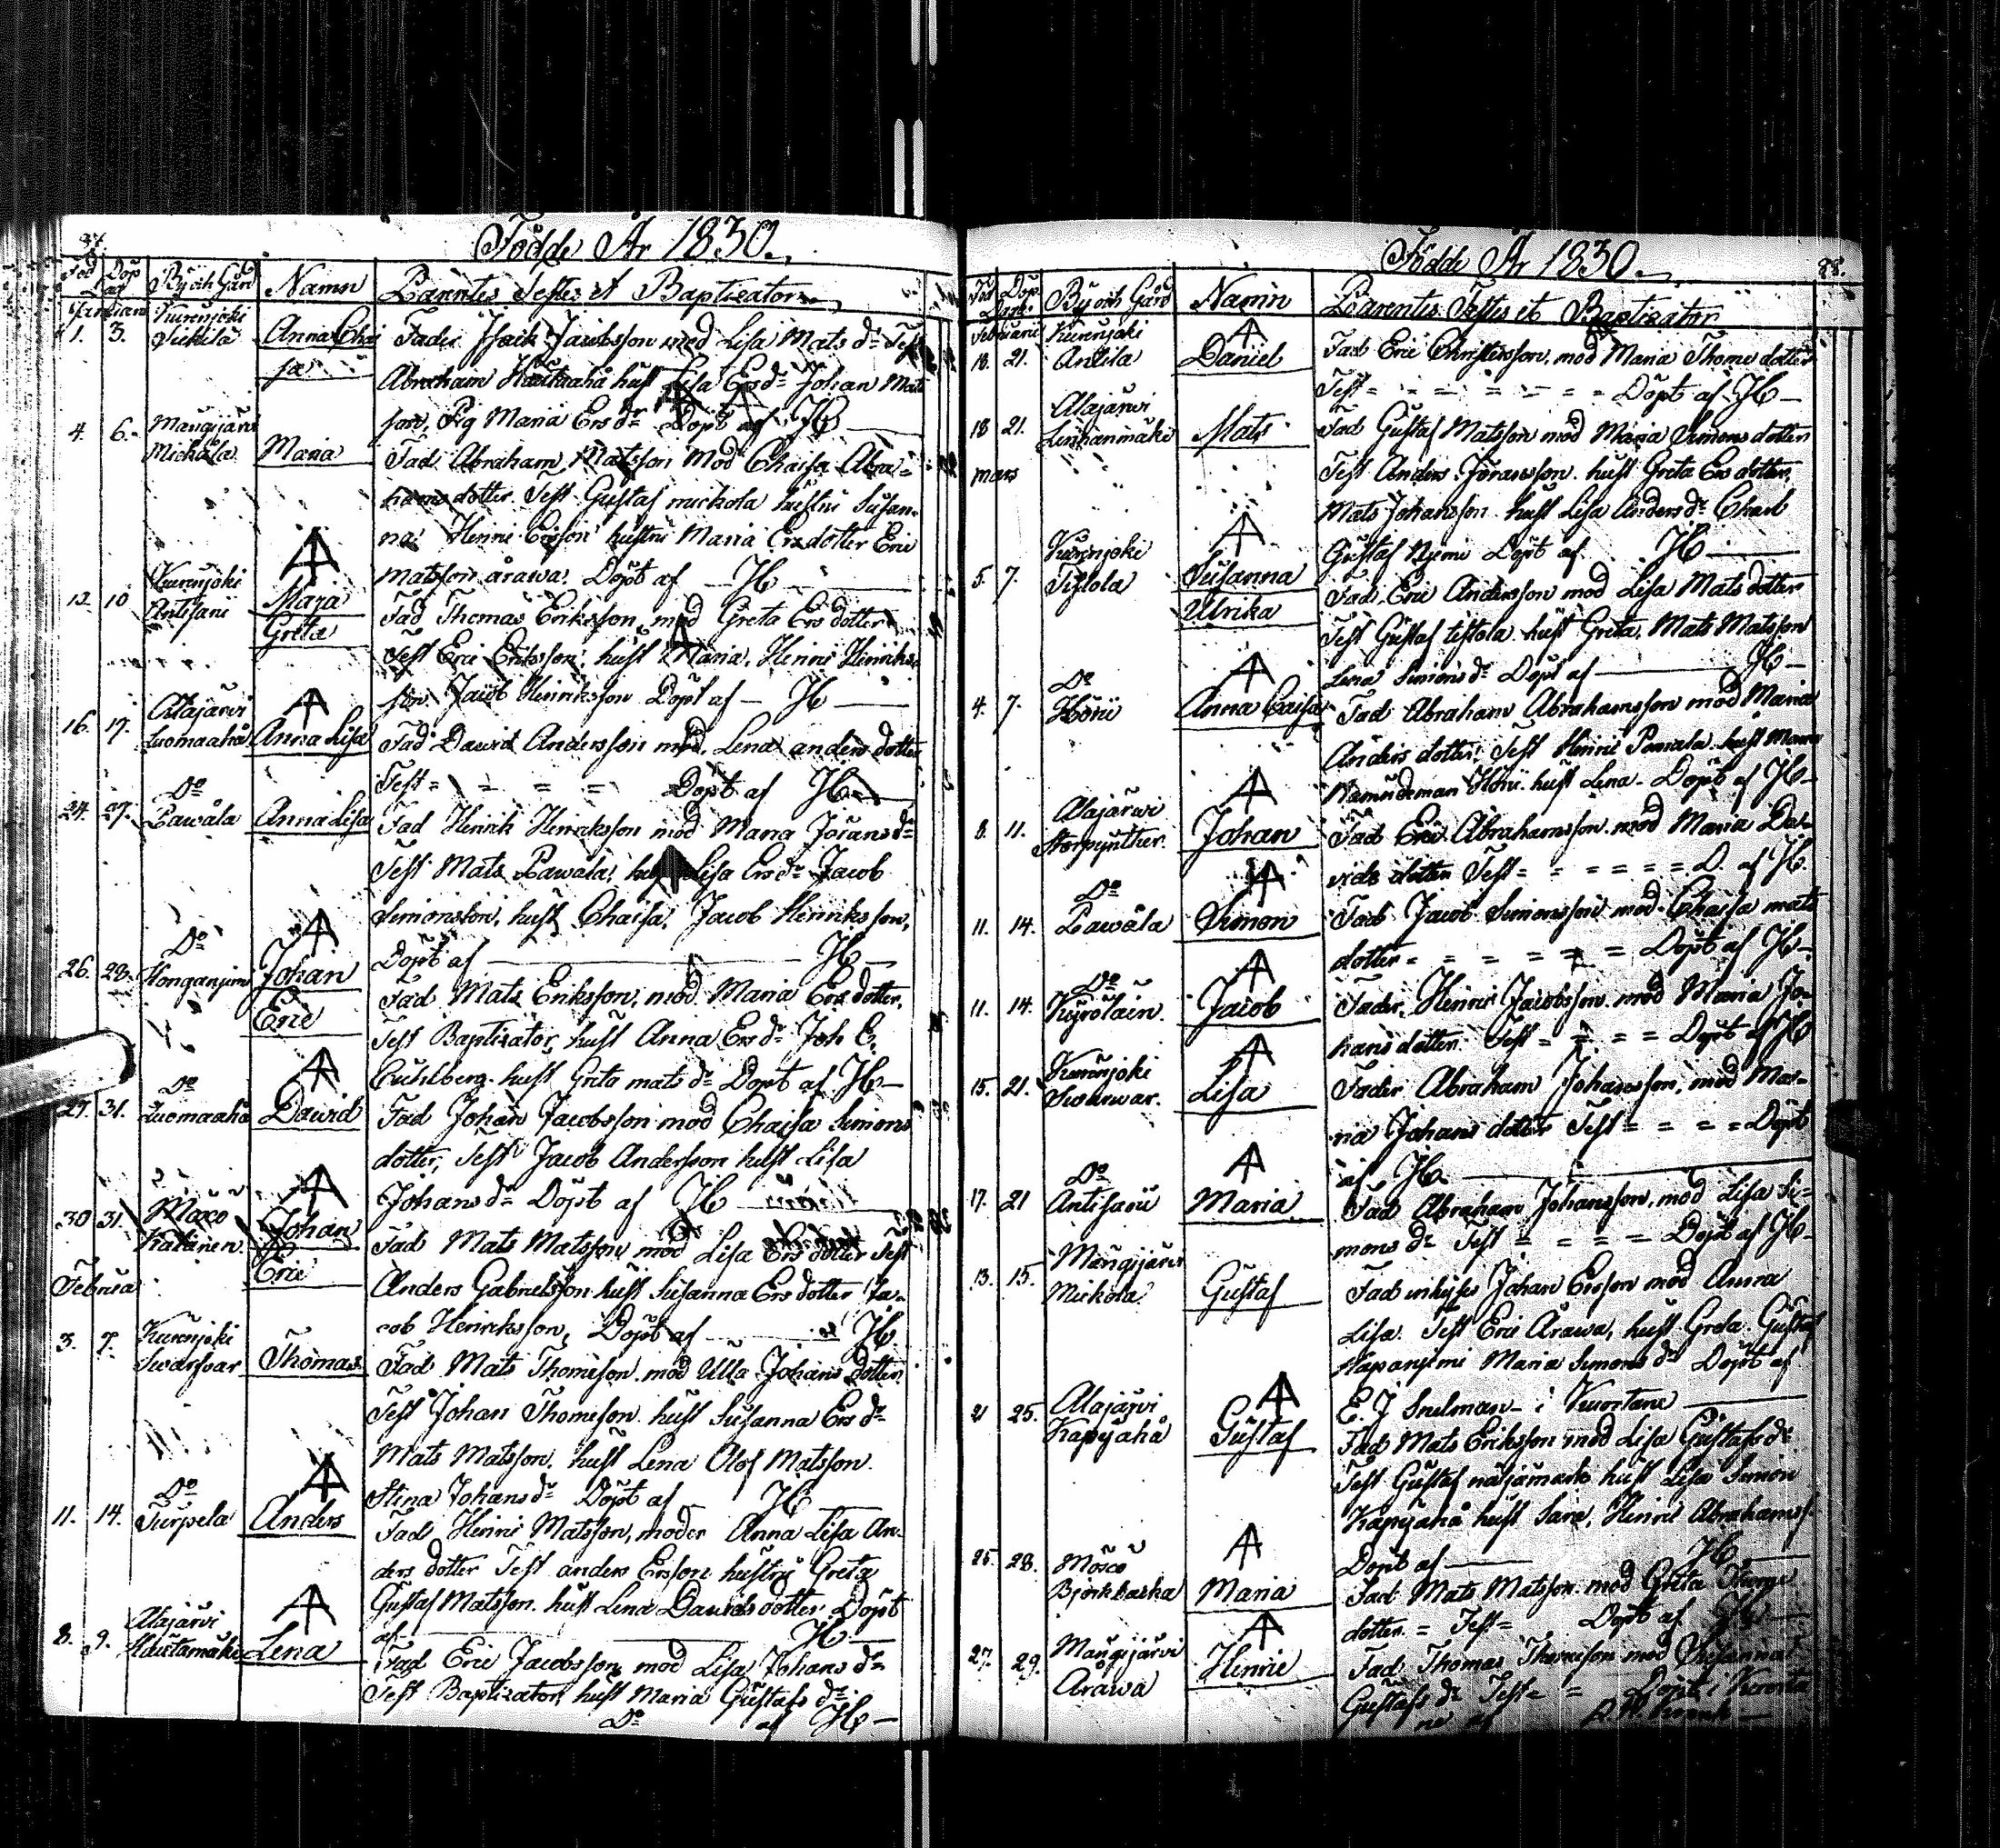 87.
Födde År 1830.
Föd Döp By och Gård Namn Parentes Testes et Baptizator
Dag
Januari Kurenjoki
1. 3. Anna Chai Fader Isack Jacobsson mod Lisa Mats dr Test
sa Abraham hust Lisa Ersdr Johan Mats
son, Pig Maria Ersdr Döpt af JH
4. 6. Mängijärvi
Michåla Maria Fad Abraham Matsson Mod Chaisa Abra=
hams dotter Test Gustaf mickola hustru Susan-
na Henric Ersson hustru Maria Ersdotter Eric
Matsson årawa. Döpt af JH
12. 10 Kurenjoki
Antisani Maja Fad Thomas Eriksson mod Greta Ersdotter
Greta Test Eric Eriksson, hust Maria, Henric Henriks-
son Jacob Henriksson Döpt af JH
16. 17. Alajärvi
Luomaaho Anna Lisa Fad David Andersson mod. Lena anders dotter
Test = = = = Döpt af JH
24. 27. Do
Pawåla Anna Lisa Fad Henrik Henriksson mod Maria Jöransdr
Test Mats Pawåla, hust Lisa Ersdr Jacob
Simonsson, hust Chaisa, Jacob Henriksson,
Döpt af JH
26. 28. Do
Honganjemi Johan Fad Mats Eriksson, mod Maria Ersdotter,
Eric Test Baptizator, hust Anna Ersdr Joh E.
hust Greta mats dr Döpt af JH
27. 31. Do
Luomaaho David Fad Johan Jacobsson mod Chaisa Simons
dotter, Test Jacob Andersson hust Lisa
Johansdr Döpt af JH
30 31. Mäco
Johan Fad Mats Matsson mod Lisa Ersdotter Test
Eric Anders Gabrielsson hust Susanna Ersdotter Ja-
cob Henriksson, Döpt af JH
Februa
3. 7. Kurenjoki
Swarfvar Thomas Fad Mats Thomeson mod Ulla Johans dotter
Test Johan Thomeson hust Susanna Ersdr
Mats Matsson, hust Lena Olof Matsson
Stina Johansdr Döpt af JH
11. 14. Do
Turpela Anders Fad Henric Matsson, moder Anna Lisa An-
ders dotter Test anders Ersson hustru Greta
Gustaf Matsson hust Lena Davids dotter Döpt
af JH
8. 9. Alajärvi
Hautamäki Lena Fad Eric Jacobsson mod Lisa Johans dr
Test Baptizator, hust Maria Gustafs dr
Do af JH
88.
Födde År 1830.
Föd Döp By och Gård Namn Parentes Testes et Baptizator
Februarii Kurenjoki
18. 21. Antila Daniel Fad Eric Christersson, mod Maria Thome dotter
Test = = = = = = = Döpt af JH
18 21. Alajärvi
Linnanmäki Mats Fad Gustaf Matsson mod Maria Simons dotter
mars Test Anders Jöransson hust Greta Ersdotter,
Mats Johansson hust Lisa Andersdr Charl
Gustaf Nyemi Döpt af JH
5. 7. Kurenjoki
Tistola Susanna Fad Eric Andersson mod Lisa Matsdotter
Ulrika Test Gustaf tistola hust Greta, Mats Matsson
Lena Simonsdr Döpt af JH
4. 7. Do
Anna Caisa Fad Abraham Abrahamsson mod Maria
Anders dotter, Test Henric hust Maria
Nämndeman hust Lena Döpt af JH
8. 11. Alajärvi
Johan Fad Eric Abrahamsson mod Maria Da-
vids dotter Test = = = = = D. af JH
11. 14. Do
Pawåla Simon Fad Jacob Simonsson mod Chaisa mats
dotter = = = = = Döpt af JH
11. 14. Do
Kyrölain Jacob Fader, Henric Jacobsson mod Maria Jo-
hans dotter Test = = = = Döpt af JH
15. 21. Kurenjoki
Swarwar. Lisa Fader Abraham Johansson, mod Ma-
ria Johans dotter Test = = = = Döpt
af JH
17. 21 Do
Antisani Maria Fad Abraham Johansson, mod Lisa Si-
mons dr Test = = = = Döpt af JH
13. 15. Mängijärvi
Mickola Gustaf Fad inhyses Johan Ersson mod Anna
Lisa Test Eric Årawa, hust Greta Gustaf
Hapanjemi Maria Simons dr Döpt af
E. J Snelman i Kuortane
21 25. Alajärvi
Kapyaho Gustaf Fad Mats Eriksson mod Lisa Gustafsdr
Test Gustaf hust Lisa Simon
Kapyaho hust Sara, Henric Abrahamss
Döpt af JH
25. 28. Möcö
Björkbacka Maria Fad Mats Matsson mod Greta Thome
dotter = Test = Döpt af JH
27. 29. Mängijärvi
Årawa Henric Fad Thomas Thomeson mod Susanna
Gustafs dr Test = = Döpt i Kuorta
ne af